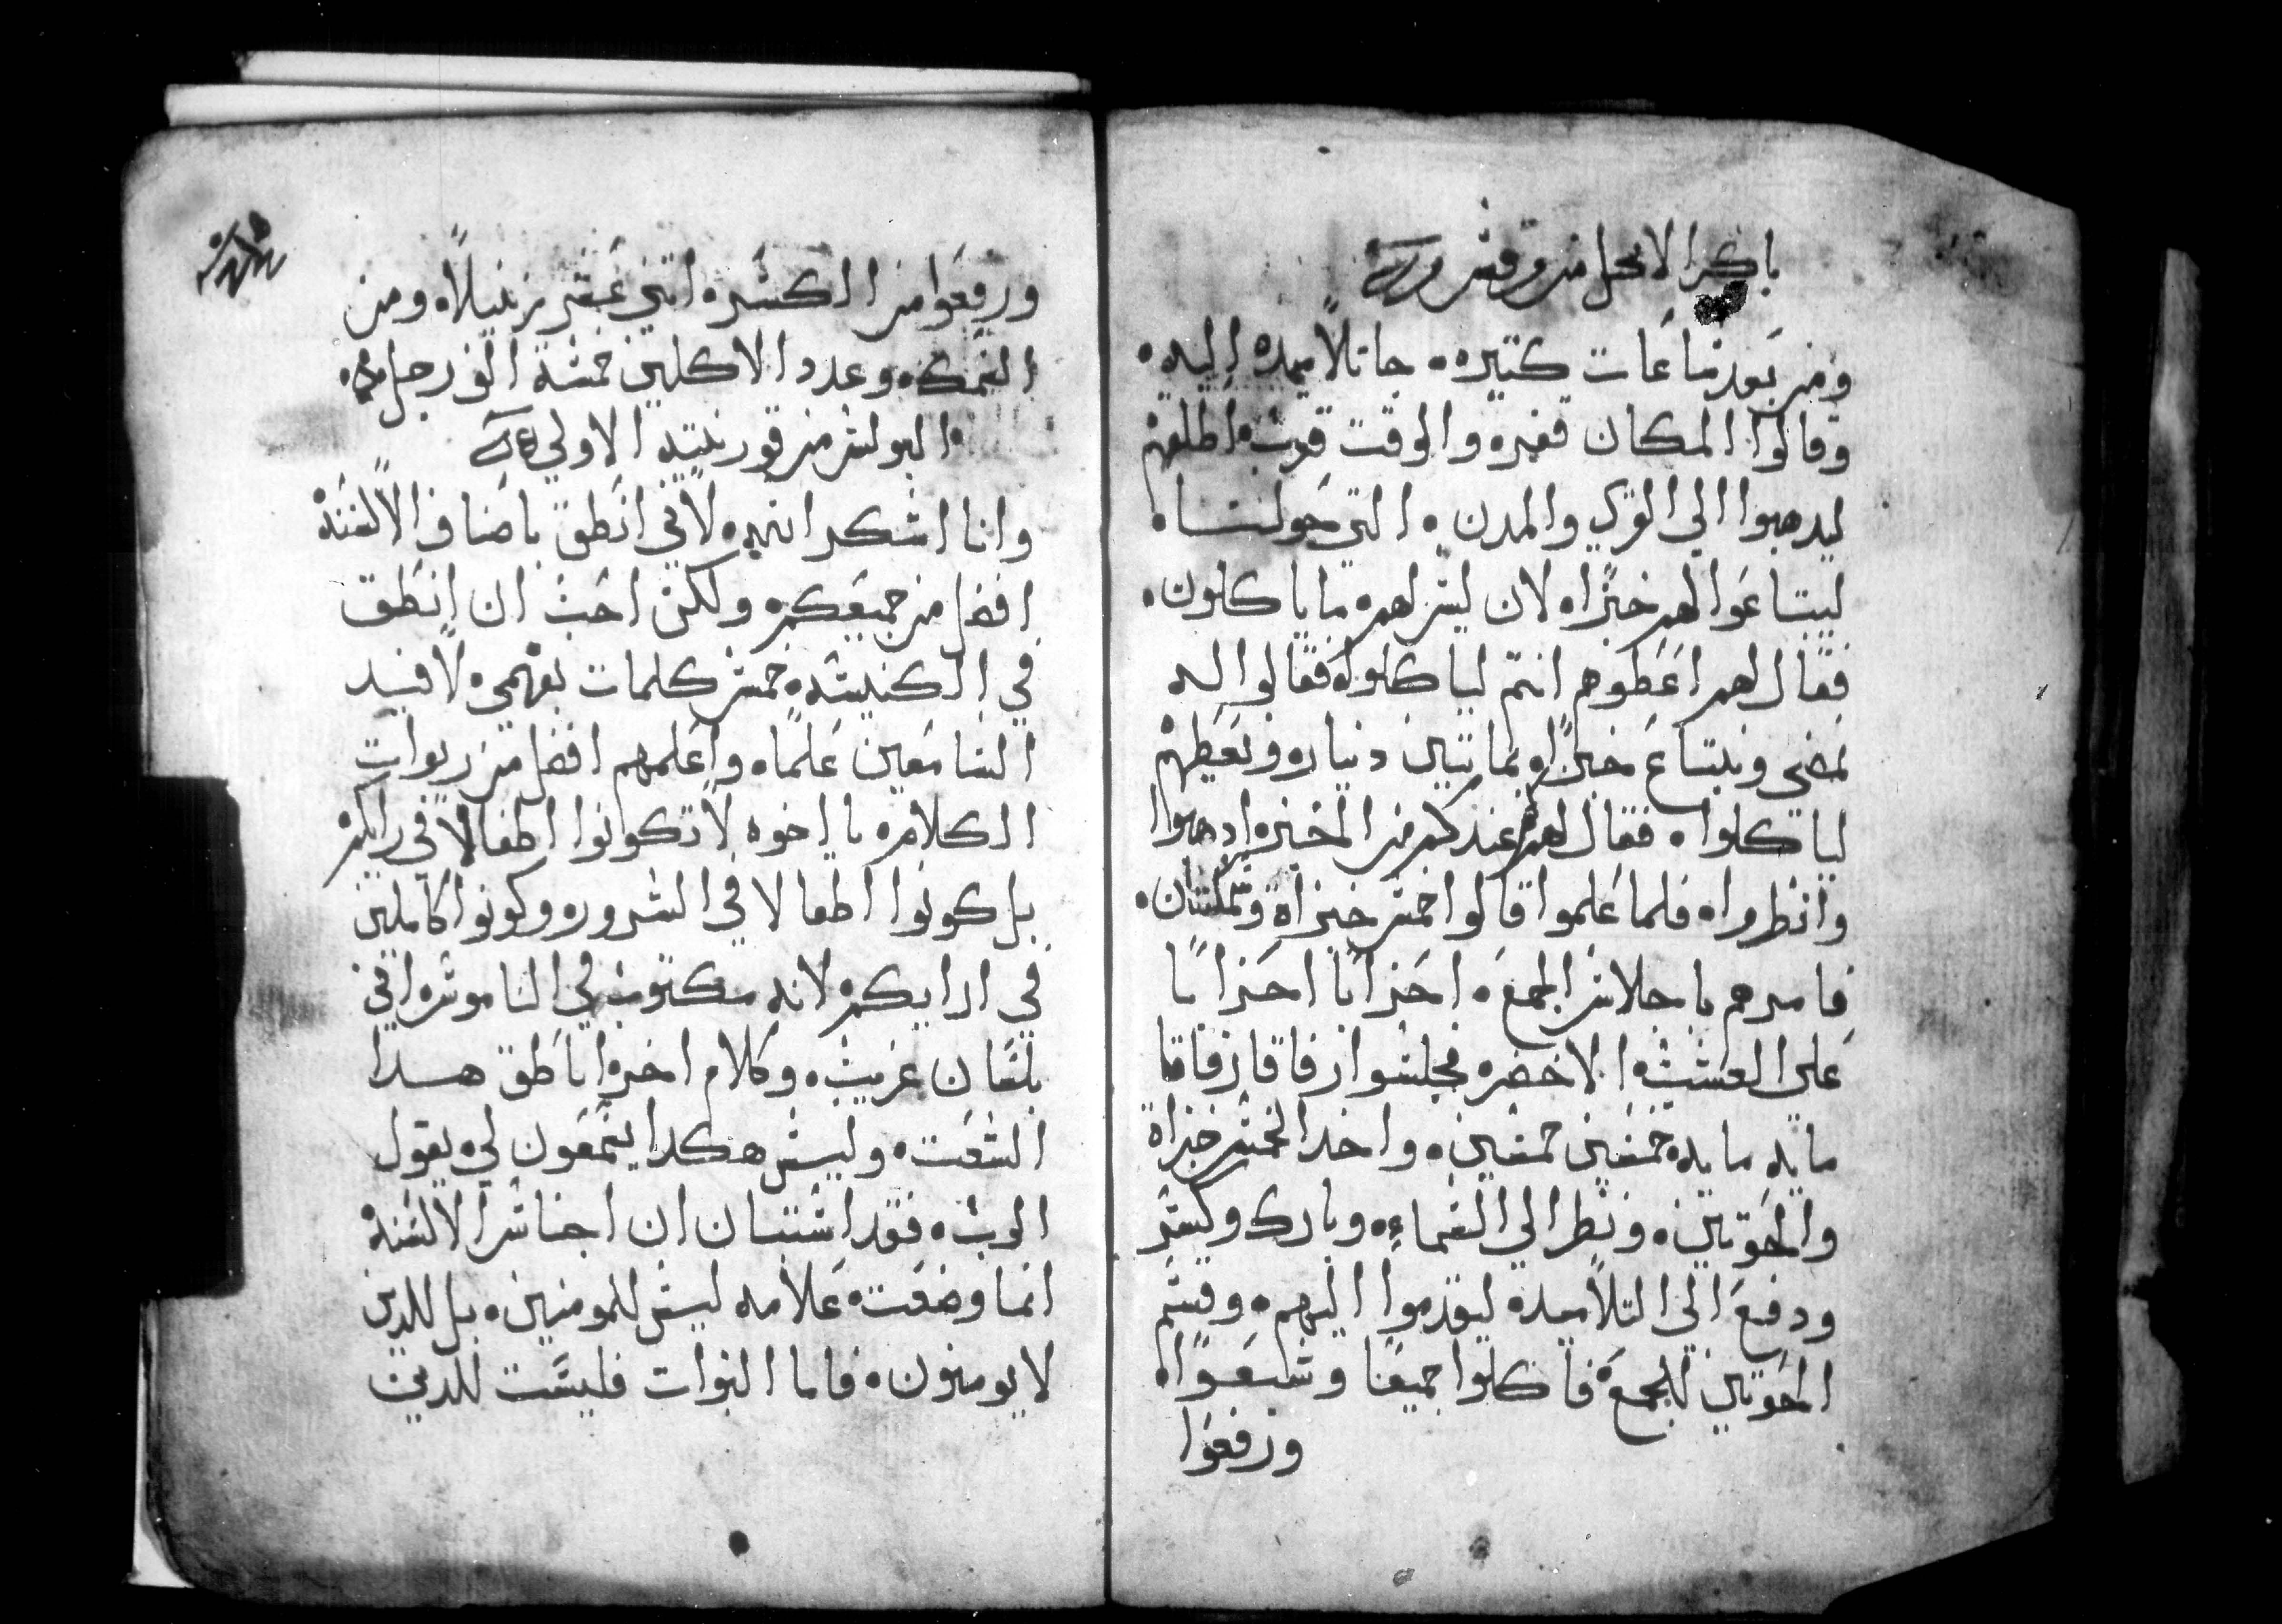 باكر الانجيل من مرقس
ومن بعد ساعات كتيره ۰ جا تلاميده اليه ۰
وقالوا المكان قفره والوقت قرب ۰ اطلقهم
ليدهبوا الي القري والمدن ۰ التي حولنا ۰
ليبتاعوا لهم خبزا ۰ لان ليس لهم ما ياكلون ۰
فقال لهم اعطوهم انتم لياكلوا ۰ فقالوا له
نمضي ونبتاع خبزا بماتيين دينار ۰ ونعطيهم
لياكلوا ۰ فقال لهم كم عندكم من الخبز ۰ ادهبوا
وانظروا ۰ فلما علموا قالوا خمس خبزاة وسمكتان ۰
فامرهم باجلاس الجمع ۰ احزابا احزابا
علي العشب ۰ الاخضر ۰ فجلسوا رفاقا رفاقا
مايه مايه ۰ خمسين خمسين ۰ واخد الخمس خبزاة
والحوتين ۰ ونظر الي السماء ۰ وبارك وكسر
ودفع الي التلاميد ۰ ليقدموا اليهم ۰ وقسم
الحوتين للجمع ۰ فاكلوا جميعا وشبعوا ۰
ورفعوا
ورفعوا من الكسره اتني عشر زنبيلا ۰ ومن
السمك ۰ وعدد الاكلين خمسة الف رجل ۰
البولس من قورنتيه الاولي
وانا اشكر الله ۰ لاني انطق باصناف الالسنة
افضل من جميعكم ۰ ولكن احب ان انطق
في الكنيسه ۰ خمس كلمات بفهمي ۰ لافيد
السامعين علما ۰ واعلمهم افضل من ربوات
الكلام ۰ يا اخوه لا تكونوا اطفالا في رايكم
بل كونوا اطفالا في الشرور ۰ وكونوا كاملين
في ارايكم ۰ لانه مكتوب في الناموس ۰ اني
بلسان غريب ۰ وكلام اخر ۰ اناطق هدا
الشعب ۰ وليس هكدا يسمعون لي ۰ يقول
الرب ۰ فقد استبان ان اجناس الالسنة
انما وضعت ۰ علامه ليس للمومنين ۰ بل للدين
لا يومنون ۰ فاما النبوات فليست للدين